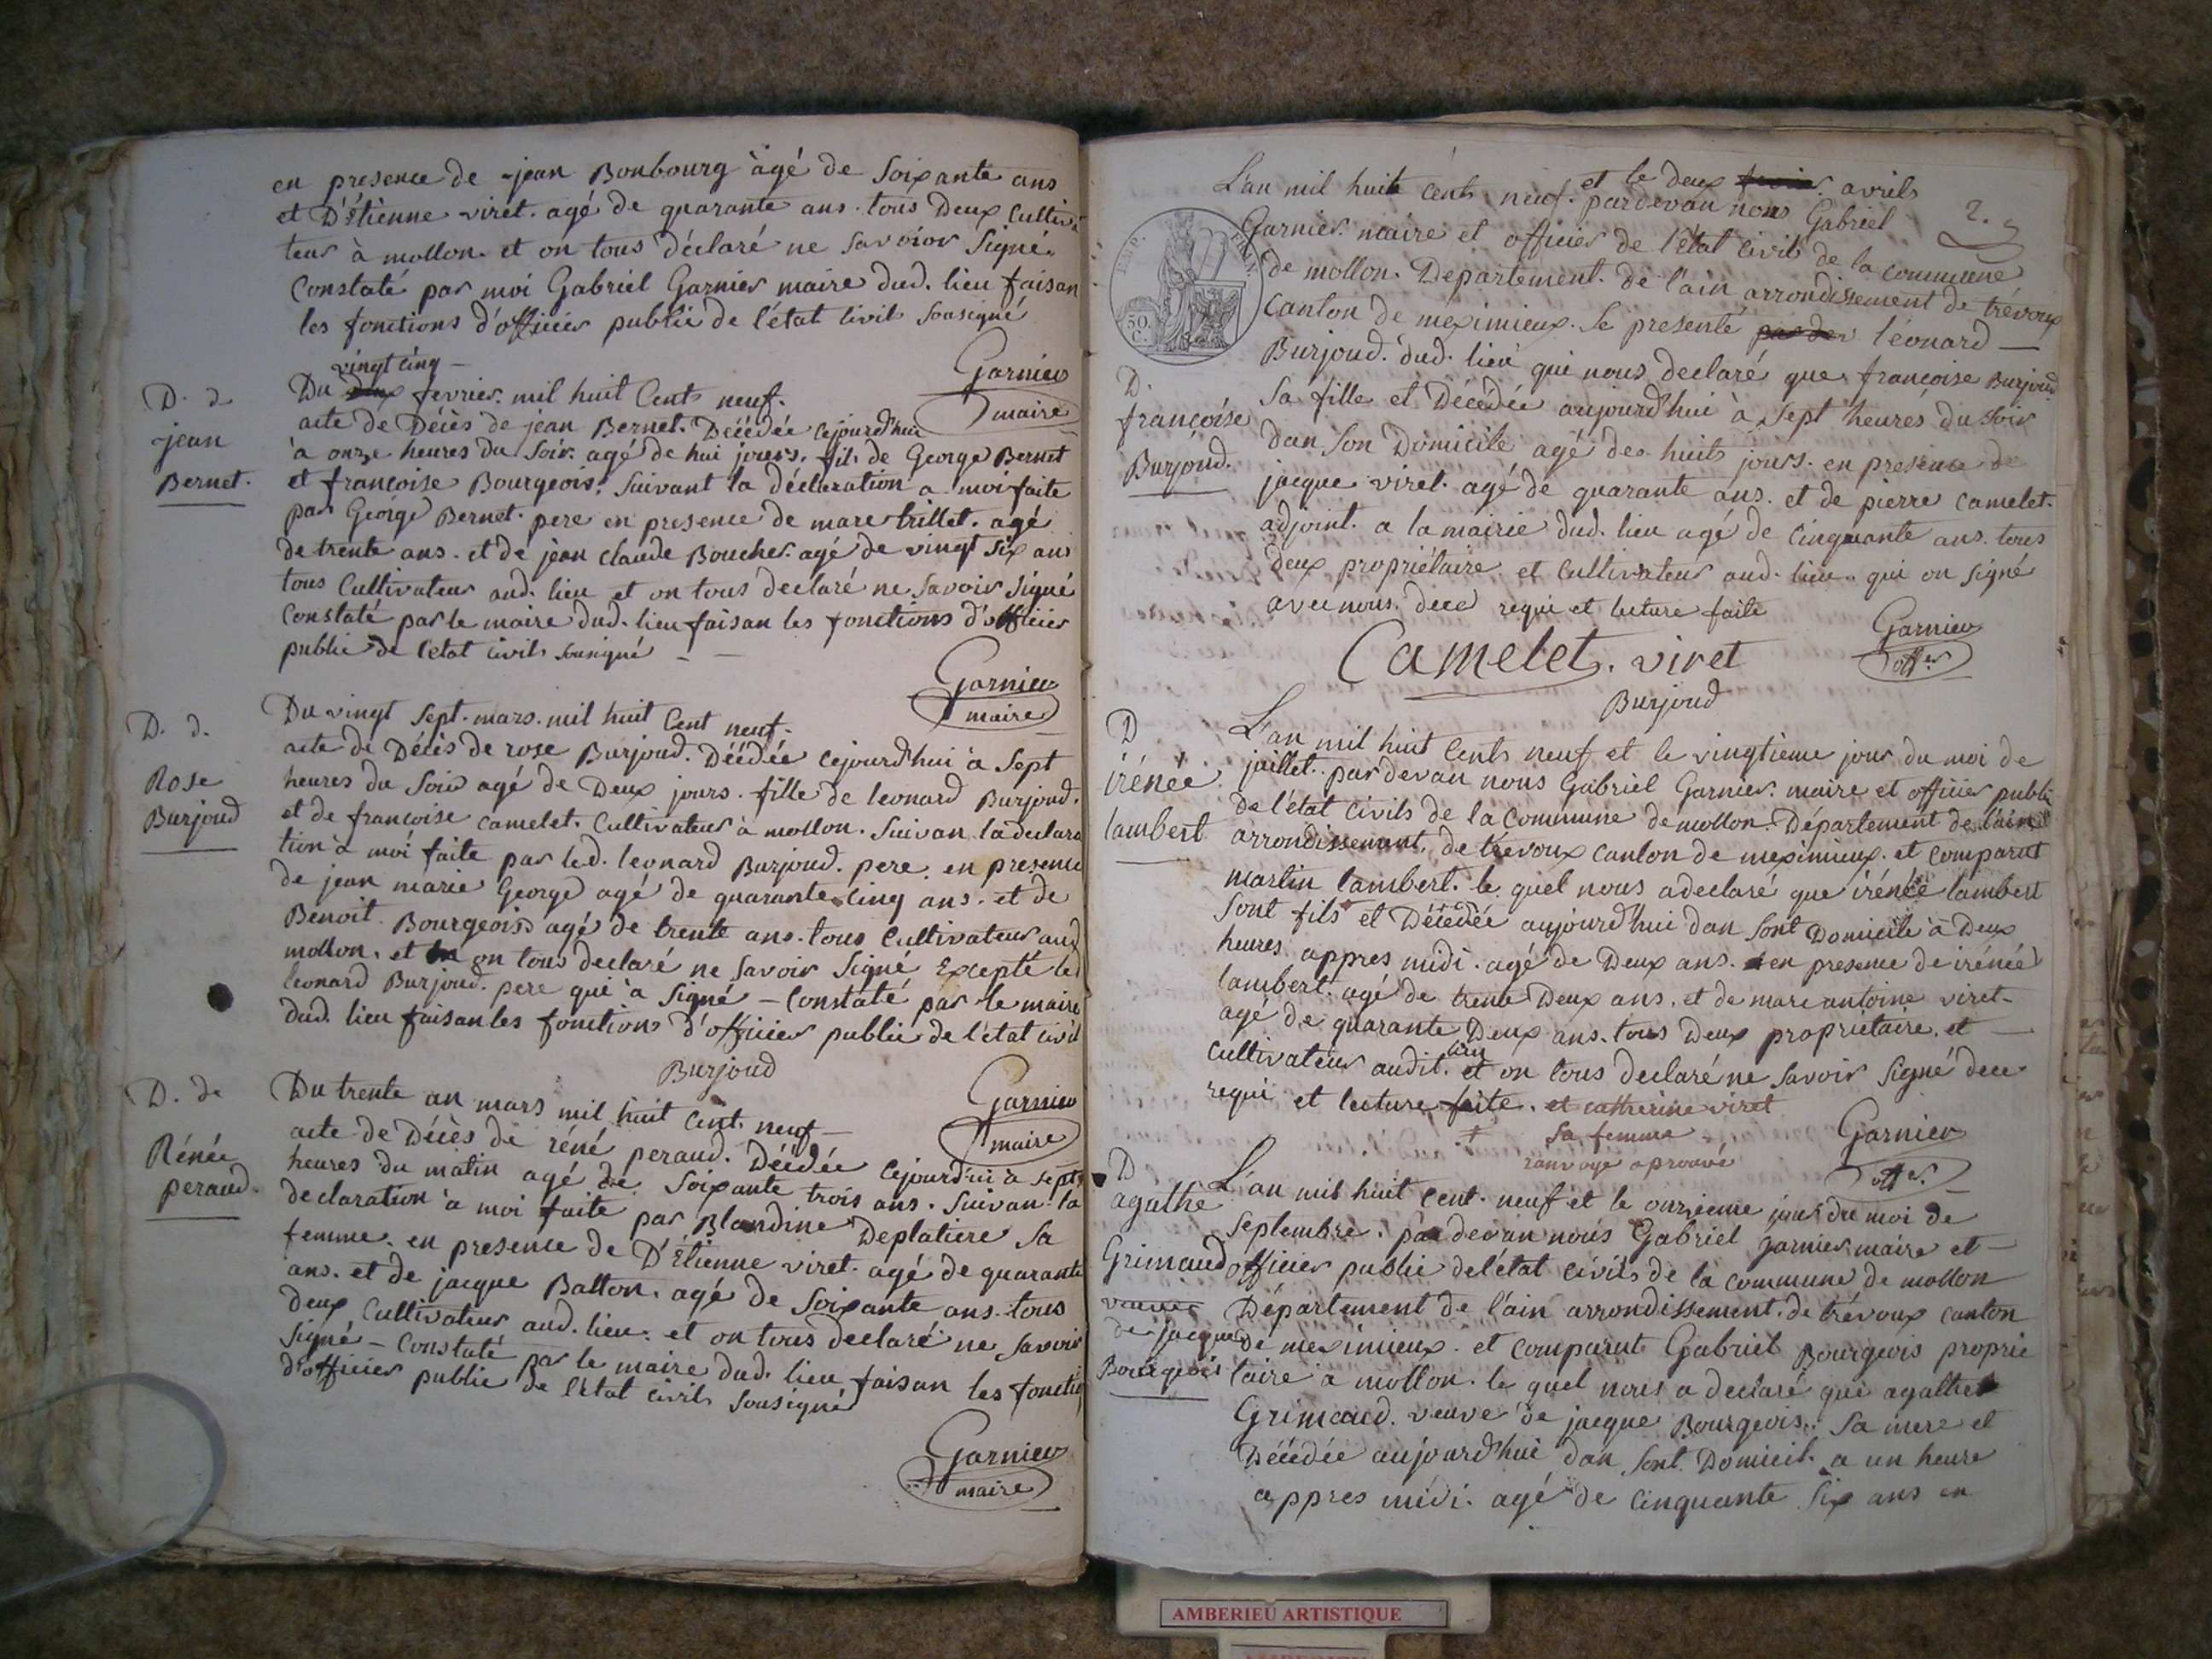 en presence de jean Bonbourg àgé de Soixante ans
et D'Étienne viret. agé de quarante ans. tous Deux Cultiva
teur à mollon. et on tous déclaré ne Savoior Signé.
Constaté par moi Gabriel Garnier maire dud. lieu faisan
les fonctions d'officier public de l'état Civil Sousigné
Garnier
maire
D. de
jean
Bernet.
vingt cinq
Du fevrier. mil huit Cents neuf.
acte de Décès de jean Bernet. Décédée cejourd'hui
à onze heures du Soir. agé de hui jours. fils de George Bernet
et françoise Bourgeois. Suivant la déclaration a moi faite
par George Bernet. pere en presence de marc trillet. agé
de trente ans. et de jean Claude Boucher. agé de vingt Six ans
tous Cultivateur aud. lieu et on tous declaré ne Savoir Signé
Constaté par le maire dud. lieu faisan les fonctions d'officier
public de l'etat Civil Sousigné
Garnier
maire
D. d.
Rose
Burjoud
Du vingt Sept. mars. mil huit Cent neuf.
acte de Décès de rose Burjoud. Décédée cejourd'hui à Sept
heures du Soir agé de Deux jours. fille de leonard Burjoud.
et de francoise camelet. Cultivateur à mollon. Suivan la declara
tion à moi faite par led. leonard Burjoud. pere. en presence
de jean marie George agé de quarante Cinq ans. et de
Benoit Bourgeois agé de trente ans. tous Cultivateur aud
mollon. et on tous declaré ne Savoir Signé Excepté led
leonard Burjoud. pere qui a Signé – Constaté par le maire
dud. lieu faisan les fonctions d'officier public de l'état civil
Burjoud
Garnier
maire
D. de
Rénée
peraud.
Du trente un mars mil huit Cent. neuf –
acte de Décès de réné peraud. Décédée Cejourd'ui à Sept
heures du matin agé de Soixante trois ans. Suivan la
declaration à moi faite par Blandine Deplatiere Sa
femme. en presence de D'Étienne viret. agé de quarante
ans. et de jacque Balton. agé de Soixante ans. tous
deux Cultivateur aud. lieu. et on tous declaré ne Savoir
Signé – Constaté par le maire dud. lieu faisan les fonctio
d'officier public de l'état Civil Sousigné
Garnier
maire
L'an mil huit Cents neuf. et le deux avrils
pardevan nous Gabriel
2.
Garnier. maire et officier de l'état Civils de la Commune
de mollon. Departement. de l'ain arrondissement de trévoux
Canton de meximieux. Se presenté léonard –
Burjoud. dud. lieu qui nous declaré que francoise Burjoud
Sa fille et Décédée aujourd'hui à Sept heures du Soir
dan Son Domicile agé des huits jours. en presence de
jacque viret. agé de quarante ans. et de pierre Camelet.
adjoint. a la mairie dud. lieu agé de Cinquante ans. tous
deux propriétaire et Cultivateur aud. lieu. qui on Signé
avec nous. dece requi et lecture faite
IMP.
50.
C.
D.
françoise
Burjoud.
Garnier
offer
Camelet. viret
Burjoud
D
irénée
lambert
L'an mil huit Cents neuf et le vingtieme jour du moi de
juillet. pardevan nous Gabriel Garnier. maire et officier publi
de l'état Civils de la Commune de mollon. Département de l'ain
arrondissement. de trévoux canton de meximieux. et Comparut
martin lambert. le quel nous a declaré que irénée lambert
Sont fils et Décédée aujourd'hui dan Sont Domicile à Deux
heures appres midi. agé de Deux ans. en presence de irénée
lambert. agé de trente Deux ans. et de marc antoine viret
agé de quarante Deux ans. tous Deux propriétaire. et –
lieu
Cultivateur audit. et on tous declaré ne Savoir Signé dece
requi et lecture faite. et catherine viret
Sa femme
ranvoye aprouvé
Garnier
offer.
D
agathe
Grimaud
veuve
de jacque
Bourgeois
L'an mil huit Cent. neuf et le onzieme jour du moi de
Septembre. pardevan nous Gabriel garnier maire et –
officier public de l'état civils de la Commune de mollon
Département de l'ain arrondissement. de trévoux canton
de meximieux. et Comparut Gabriel Bourgeois proprie
taire à mollon. le quel nous a declaré que agathe
Grimaud. veuve de jacque Bourgeois. Sa mere et
Décédée aujourd'hui dan Sont Domicil. a un heure
appres midi. agé de Cinquante Six ans en
AMBERIEU ARTISTIQUE